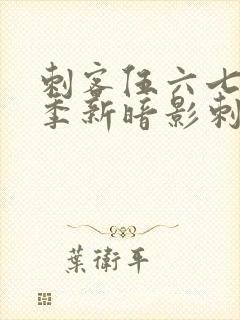 刺客伍六七
季新暗影刺
葉衛平